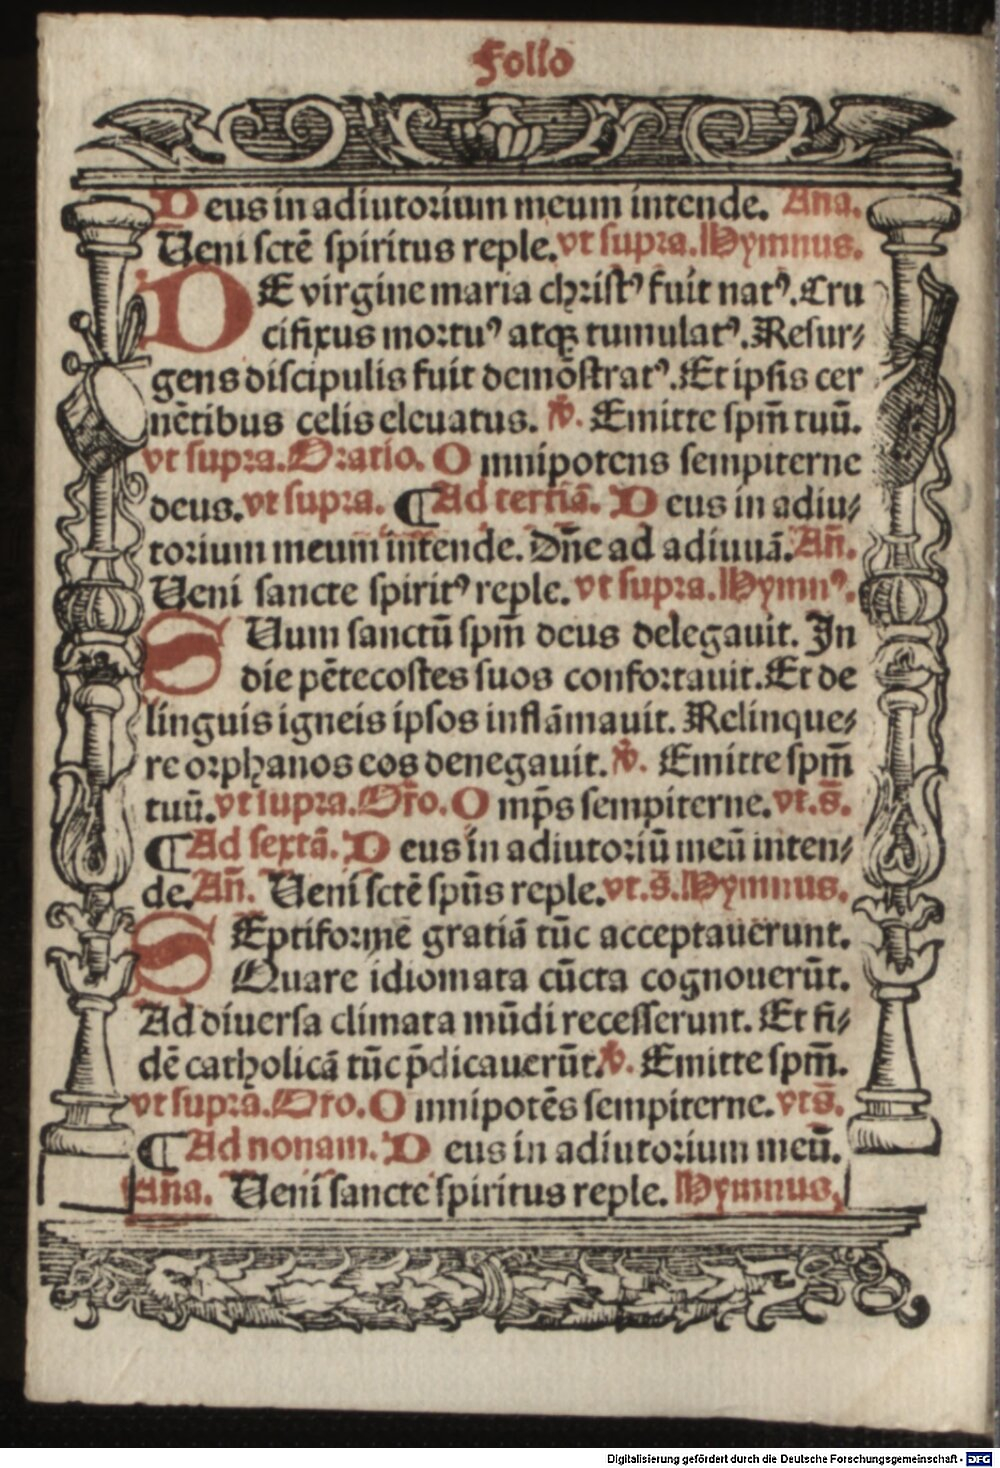 Folio
Deus in adiutorium meum intende. Ana.
Veni sctē spiritus reple. vt supra. Hymnus.
DE virgine maria christꝰ fuit natꝰ. Cru
cifixus mortuꝰ atqꝫ tumulatꝰ. Resur⸗
gens discipulis fuit demōstratꝰ. Et ipsis cer
nētibus celis eleuatus. ℣. Emitte spm̄ tuū.
vt supra. Oratio. Omnipotens sempiterne
deus. vt supra. ¶Ad tertiā. Deus in adiu⸗
torium meum intende. Dn̄e ad adiuuā. An̄.
Veni sancte spiritꝰ reple. vt supra. Hymnꝰ.
SUum sanctū spm̄ deus delegauit. In
die pētecostes suos confortauit. Et de
linguis igneis ipsos inflāmauit. Relinque⸗
re orphanos eos denegauit. ℣. Emitte spm̄
tuū. vt supra. Or̄o. Omp̄s sempiterne. vt. s̄.
¶Ad sextā. Deus in adiutoriū meū inten⸗
de. An̄. Veni sctē spūs reple. vt. s̄. Hymnus.
SEptiformē gratiā tūc acceptauerunt.
Quare idiomata cūcta cognouerūt.
Ad diuersa climata mūdi recesserunt. Et fi⸗
dē catholicā tūc p̄dicauerūt. ℣. Emitte spm̄.
vt supra. Oro. Omnipotēs sempiterne. vt s̄.
¶Ad nonam. Deus in adiutorium meū.
Ana. Veni sancte spiritus reple. Hymnus.
Digitalisierung gefördert durch die Deutsche Forschungsgemeinschaft - DFG